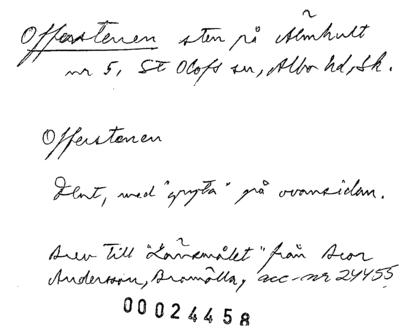 Offerstenen sten på Älmhult
nr 5, St Olofs sn, Albo hd, Sk.
Offerstenen
Flat, med "gryta" på ovansidan.
Brev till "Landsmålet" från Ivar
Andersson, Bromölla, acc-nr 24455
00024458